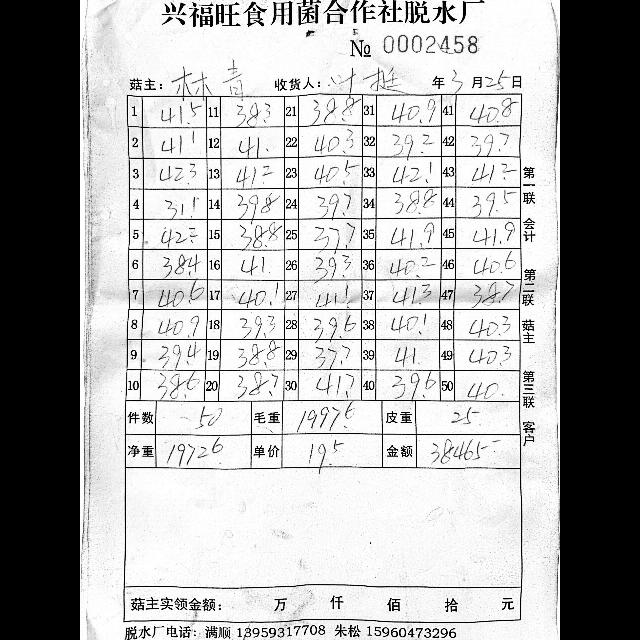 兴福旺食用菌合作社脱水厂
№ 0002458
菇主: 林青 收货人: 叶挺 年 3 月 25 日
1 41.5 11 38.3 21 38.8 31 40.9 41 40.8
2 41.1 12 41. 22 40.3 32 39.2 42 39.7
3 42.3 13 41.2 23 40.5 33 42.1 43 41.2
4 31.1 14 39.8 24 39.7 34 38.8 44 39.5
5 42.2 15 38.8 25 37.7 35 41.9 45 41.9
6 38.4 16 41. 26 39.3 36 40.2 46 40.6
7 40.6 17 40.1 27 41.1 37 41.3 47 38.7
8 40.9 18 39.3 28 39.6 38 40.1 48 40.3
9 39.4 19 38.8 29 37.7 39 41. 49 40.3
10 38.6 20 38.7 30 41.7 40 39.6 50 40.
件数 50 毛重 1997.6 皮重 25
净重 1972.6 单价 19.5 金额 38465
菇主实领金额: 万 仟 佰 拾 元
脱水厂电话: 满顺 13959317708 朱松 15960473296
第一联 会计 第二联 菇主 第三联 客户